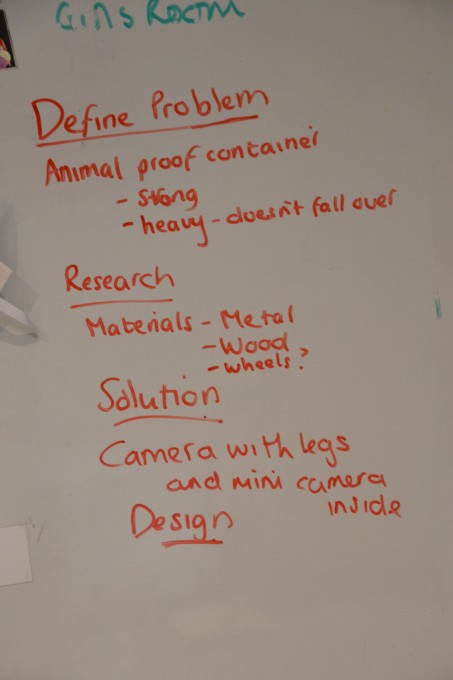 Girls Room
Define Problem
Animal proof container
- strong
- heavy - doesn't fall over
Research
Materials - Metal
- Wood
- wheels?
Solution
Camera with legs
and mini camera
inside
Design